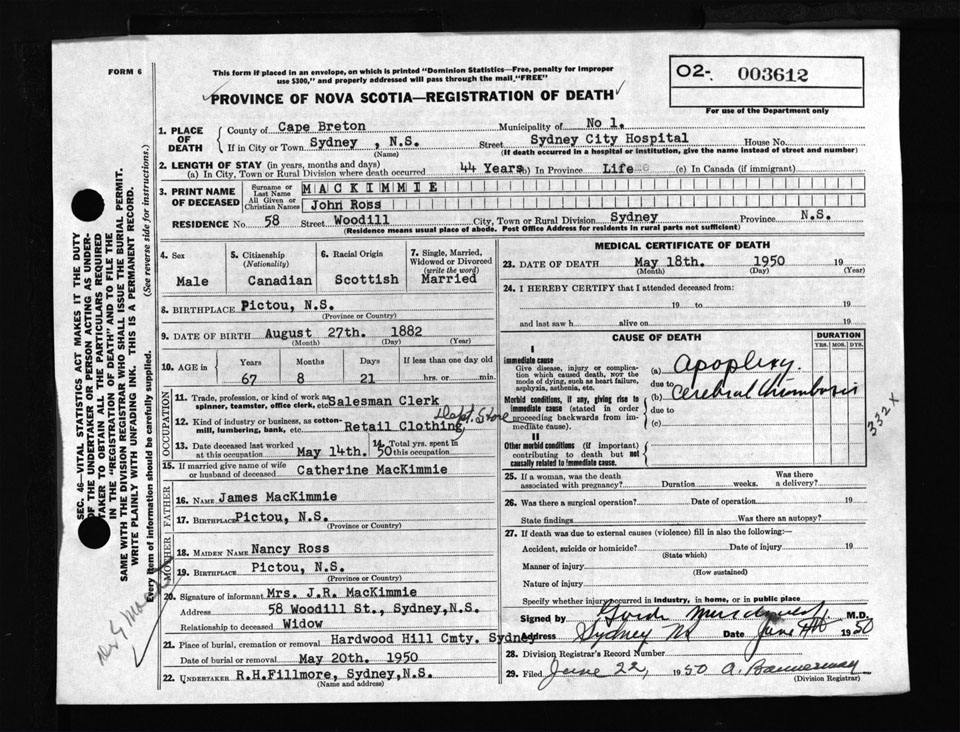 FORM 6
This form if placed in an envelope, on which is printed "Dominion Statistics—Free, penalty for improper
use $300," and properly addressed will pass through the mail "FREE"
O2-. 003612
For use of the Department only
PROVINCE OF NOVA SCOTIA—REGISTRATION OF DEATH
1. PLACE OF DEATH
County of Cape Breton Municipality of No 1.
If in City or Town Sydney , N.S. Street Sydney City Hospital House No.
(Name) (If death occurred in a hospital or institution, give the name instead of street and number)
2. LENGTH OF STAY (in years, months and days)
(a) In City, Town or Rural Division where death occurred 44 Years (b) In Province Life (c) In Canada (if immigrant)
3. PRINT NAME OF DECEASED
Surname or Last Name MACKIMMIE
All Given or Christian Names John Ross
RESIDENCE No. 58 Street Woodill City, Town or Rural Division Sydney Province N.S.
(Residence means usual place of abode. Post Office Address for residents in rural parts not sufficient)
4. Sex
Male
5. Citizenship
(Nationality)
Canadian
6. Racial Origin
Scottish
7. Single, Married,
Widowed or Divorced
(write the word)
Married
8. BIRTHPLACE Pictou, N.S.
(Province or Country)
9. DATE OF BIRTH August 27th. 1882
(Month) (Day) (Year)
10. AGE in Years Months Days If less than one day old
67 8 21 hrs. or min.
OCCUPATION
11. Trade, profession, or kind of work as
spinner, teamster, office clerk, etc. Salesman Clerk
12. Kind of industry or business, as cotton-
mill, lumbering, bank, etc. Retail Clothing Dept. Store
13. Date deceased last worked
at this occupation May 14th. 50
14. Total yrs. spent in
this occupation
15. If married give name of wife
or husband of deceased Catherine MacKimmie
FATHER
16. NAME James MacKimmie
17. BIRTHPLACE Pictou, N.S.
(Province or Country)
MOTHER
18. MAIDEN NAME Nancy Ross
19. BIRTHPLACE Pictou, N.S.
(Province or Country)
20. Signature of informant Mrs. J.R. MacKimmie
Address 58 Woodill St., Sydney,N.S.
Relationship to deceased Widow
21. Place of burial, cremation or removal Hardwood Hill Cmty. Sydney
Date of burial or removal May 20th. 1950
22. UNDERTAKER R.H.Fillmore, Sydney,N.S.
(Name and address)
MEDICAL CERTIFICATE OF DEATH
23. DATE OF DEATH May 18th. 1950 19
(Month) (Day) (Year)
24. I HEREBY CERTIFY that I attended deceased from:
19 to 19
and last saw h alive on 19
CAUSE OF DEATH
DURATION
YRS. MOS. DYS.
I
Immediate cause
Give disease, injury or complica-
tion which caused death, NOT the
mode of dying, such as heart failure,
asphyxia, asthenia, etc.
(a) Apoplexy.
due to
Morbid conditions, if any, giving rise to
immediate cause (stated in order
proceeding backwards from im-
mediate cause).
(b) Cerebral thrombosis
due to
(c)
332X
II
Other morbid conditions (if important)
contributing to death but not
causally related to immediate cause.
25. If a woman, was the death
associated with pregnancy? Duration weeks. Was there
a delivery?
26. Was there a surgical operation? Date of operation 19
State findings Was there an autopsy?
27. If death was due to external causes (violence) fill in also the following:—
Accident, suicide or homicide? Date of injury 19
(State which)
Manner of injury
(How sustained)
Nature of injury
Specify whether injury occurred in industry, in home, or in public place
Signed by M.D.
Address Sydney NS Date June 1950
28. Division Registrar's Record Number
29. Filed June 22, 1950 A. Bannerman
(Division Registrar)
SEC. 46—VITAL STATISTICS ACT MAKES IT THE DUTY
OF THE UNDERTAKER OR PERSON ACTING AS UNDER-
TAKER TO OBTAIN ALL THE PARTICULARS REQUIRED
IN THE "REGISTRATION OF DEATH" AND TO FILE THE
SAME WITH THE DIVISION REGISTRAR WHO SHALL ISSUE THE BURIAL PERMIT.
WRITE PLAINLY WITH UNFADING INK. THIS IS A PERMANENT RECORD.
Every item of information should be carefully supplied. (See reverse side for instructions.)